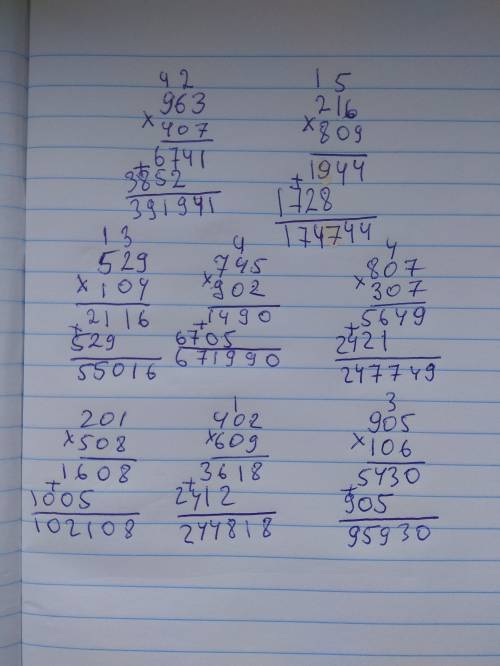 42
963
×407
6741
+
3852
391941
15
216
×809
1944
+
1728
174744
13
529
×104
2116
+
529
55016
4
745
×902
1490
+
6705
671990
4
807
×307
5649
+
2421
247749
201
×508
1608
+
1005
102108
1
402
×609
3618
+
2412
244818
3
905
×106
5430
+
905
95930